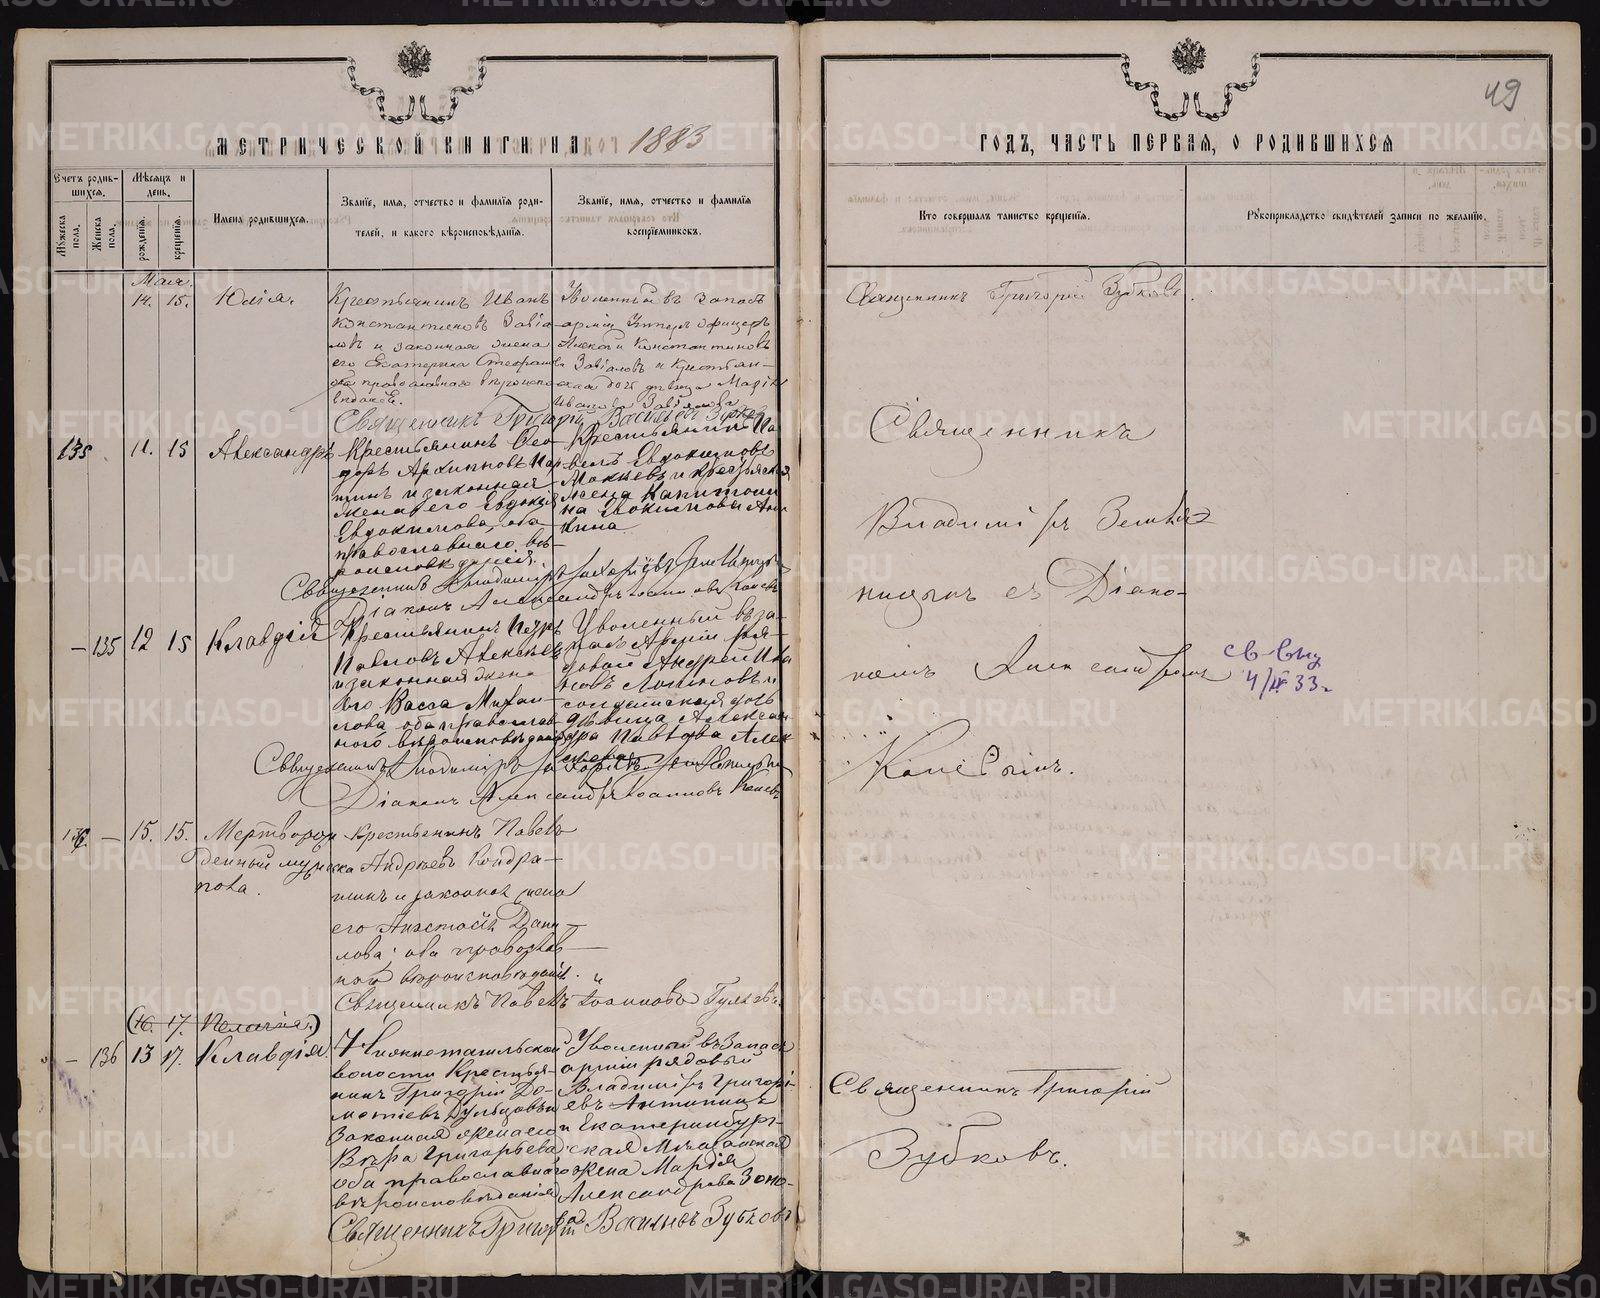 МЕТРИЧЕСКОЙ КНИГИ НА 1883
ГОДЪ, ЧАСТЬ ПЕРВАЯ, О РОДИВШИХСЯ
49
Счетъ родив-
шихся.
Мужеска пола.
Женска пола.
Мѣсяцъ и
день.
рожденія.
крещенія.
Имена родившихся.
Званіе, имя, отчество и фамилія роди-
телей, и какого вѣроисповѣданія.
Званіе, имя, отчество и фамилія
воспріемниковъ.
Кто совершалъ таинство крещенія.
Рукоприкладство свидѣтелей записи по желанію.
Мая.
14. 15. Юлія.
Крестьянинъ Иванъ
Константиновъ Завіа-
ловъ и законная жена
его Екатерина Стефано-
ва православнаго вѣроиспо-
вѣданія.
Уволенный въ запасъ
арміи Унтеръ Офицеръ
Алексѣй Константиновъ
Завіаловъ и Крестьян-
ская дочь дѣвица Марія
Иванова Завіалова
Священникъ Григорій Васильевъ Зубковъ
Священникъ Григорій Зубковъ.
135 11. 15 Александръ
Крестьянинъ Ѳео-
доръ Архиповъ
и законная
жена его Евдокія
Евдокимова, оба
православнаго вѣ-
роисповѣданія.
Крестьянинъ Па-
велъ Евдокимовъ
Мокѣевъ и крестьянская
жена Капитоли-
на Евокимова Ани-
кина
Священникъ Владиміръ
Діаконъ Александръ Іоанновъ
Священникъ
Владиміръ Земля-
ницынъ съ Діако-
номъ Александромъ
— 135 12 15 Клавдій
Крестьянинъ Петръ
Павловъ Алексѣевъ
и законная жена
его Васса Михаи-
лова оба православ-
наго вѣроисповѣданія
Уволенный въ за-
пасъ Арміи ря-
довой Андрей Ива
новъ Логиновъ и
солдатская дочь
дѣвица Алексан-
дра Павлова Алек
сѣева
Священникъ Владиміръ
Діаконъ Александръ Іоанновъ
св-вы
4/IV 33г
136. — 15. 15. Мертворож-
денный мужска
пола.
Крестьянинъ Павелъ
Андреевъ Кондра-
шинъ и законная жена
его Анастасія Дани-
лова; оба православ-
ной вѣроисповѣданія.
Священникъ Павелъ Іоанновъ
(16. 17. Пелагія.)
— 136 13 17. Клавдія.
Нижнетагильской
волости Крестья-
нинъ Григорій До-
метіевъ
Законная жена его
Вѣра Григорьева
оба православнаго
вѣроисповѣданія
Уволенный въ Запасъ
арміи рядовый
Владиміръ Григорі-
евъ Антипинъ
и Екатеринбург-
ская Мѣщанская
жена Марія
Александрова Зоно-
Священникъ Григорій Васильевъ Зубковъ
Священникъ Григорій
Зубковъ.
METRIKI.GASO-URAL.RU